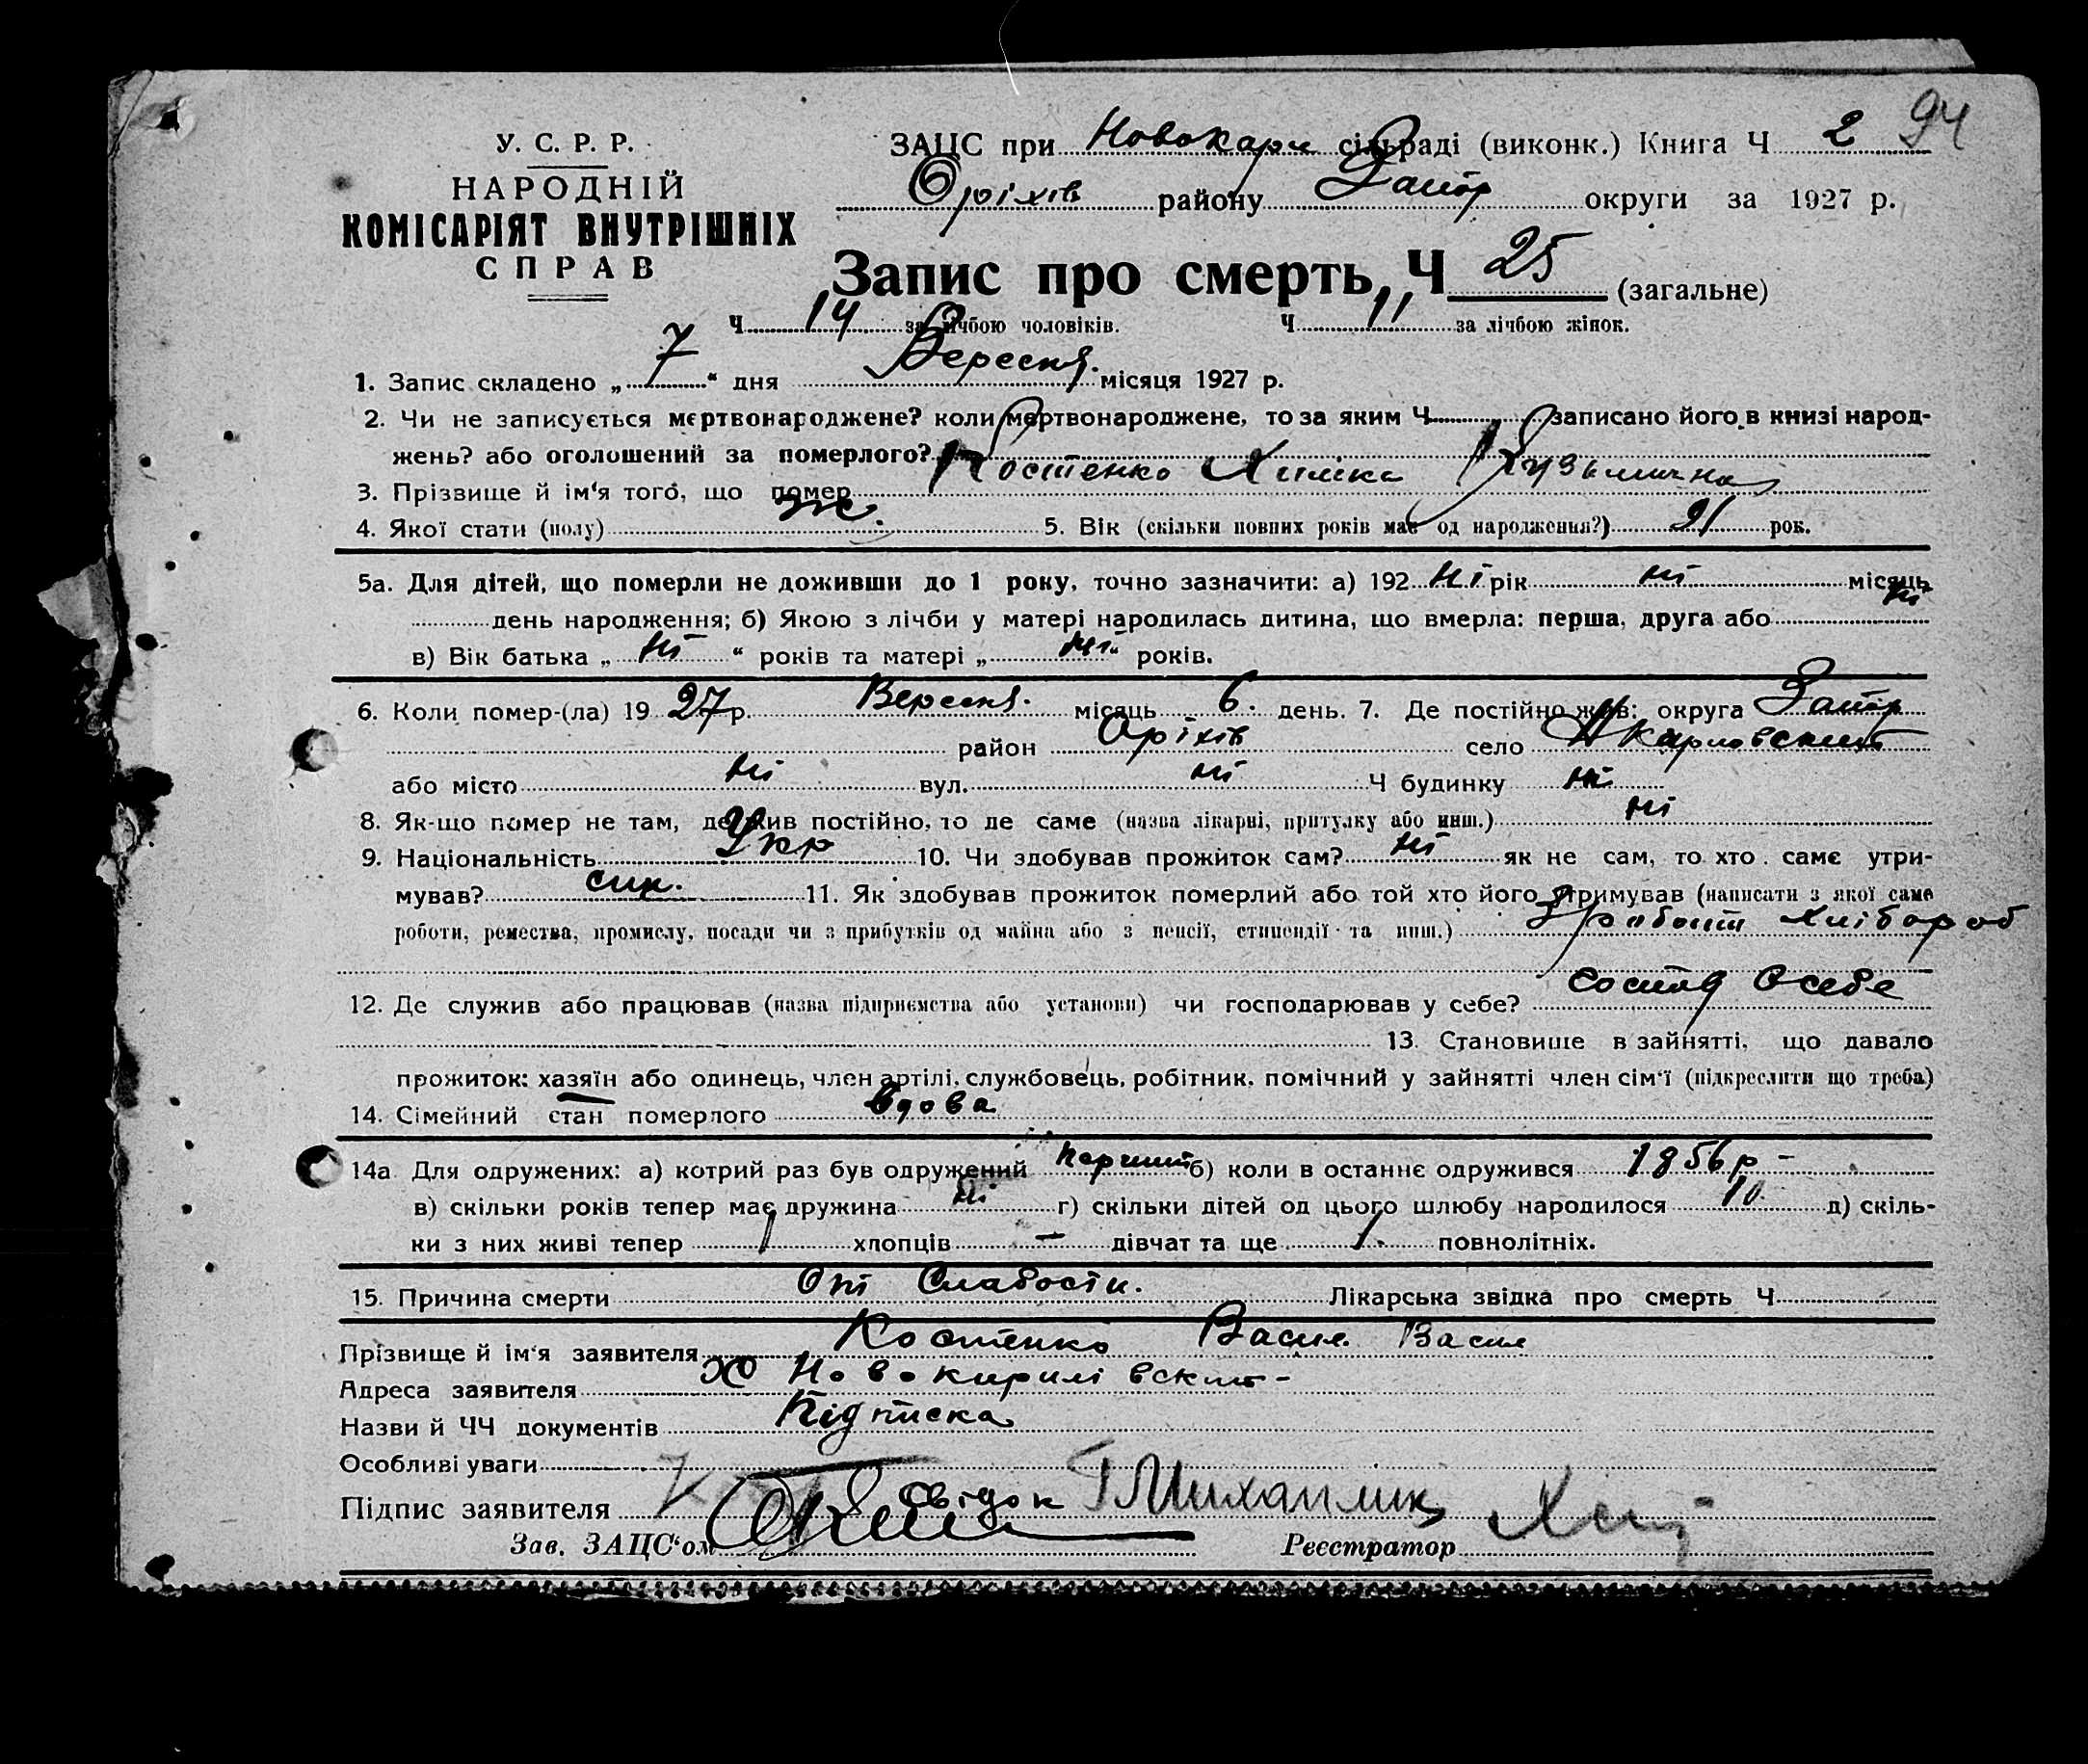 94
У. С. Р. Р.
НАРОДНІЙ
КОМІСАРІЯТ ВНУТРІШНІХ
СПРАВ
ЗАЦС при Новокарл сільраді (виконк.) Книга Ч 2
Оріхів району Запор округи за 1927 р.
Запис про смерть, Ч 25 (загальне)
Ч 14 за лічбою чоловіків. Ч 11 за лічбою жінок.
1. Запис складено „ 7 “ дня Вересня. місяця 1927 р.
2. Чи не записується мертвонароджене? коли мертвонароджене, то за яким Ч записано його в книзі народ-
жень? або оголошений за померлого?
3. Прізвище й ім‘я того, що помер Костенко Химка Кузьминична
4. Якої стати (полу) ж. 5. Вік (скільки повних років має од народження?) 91 рок.
5а. Для дітей, що померли не доживши до 1 року, точно зазначити: а) 192 ні рік ні місяць ні
день народження; б) Якою з лічби у матері народилась дитина, що вмерла: перша, друга або
в) Вік батька „ ні “ років та матері „ ні “ років.
6. Коли помер-(ла) 19 27 р. Вересня. місяць 6. день. 7. Де постійно жив: округа Запор
район Оріхів село Нкарловський
або місто ні вул. ні Ч будинку ні
8. Як-що помер не там, де жив постійно, то де саме (назва лікарні, притулку або инш.) ні
9. Національність Укр 10. Чи здобував прожиток сам? ні як не сам, то хто саме утри-
мував? син. 11. Як здобував прожиток померлий або той хто його утримував (написати з якої саме
роботи, ремества, промислу, посади чи з прибутків од майна або з пенсії, стипендії та инш.) З работи хлібороб
12. Де служив або працював (назва підприємства або установи) чи господарював у себе? господ в себе
13. Становище в зайнятті, що давало
прожиток: хазяїн або одинець, член артілі, службовець, робітник, помічний у зайнятті член сім‘ї (підкреслити що треба)
14. Сімейний стан померлого Вдова
14а Для одружених: а) котрий раз був одружений Перший б) коли в останнє одружився 1856 р -
в) скільки років тепер має дружина ні г) скільки дітей од цього шлюбу народилося 10 д) скіль-
ки з них живі тепер 1 хлопців — дівчат та ще 1. повнолітніх.
15. Причина смерти От Слабости. Лікарська звідка про смерть Ч
Прізвище й ім‘я заявителя Костенко Васил Васил
Адреса заявителя х Новокирилівский -
Назви й ЧЧ документів Підписка
Особливі уваги
Підпис заявителя свідок Г Михайлик
Зав. ЗАЦС‘ом Реєстратор